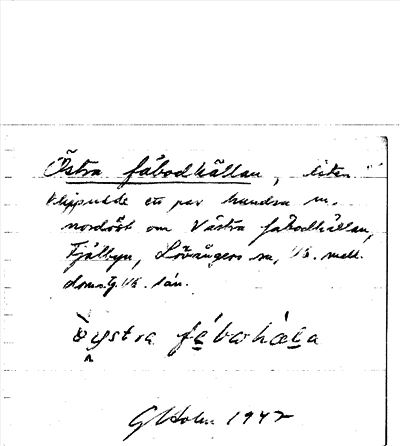 Östra fäbodhällan, liten
klippudde ett par hundra m.
nordöst om Västra fäbodhällan,
Fjälbyn, Lövångers sn, Vb. mell.
doms. Vb. län.
östra fäbwhäla
GHolm 1947